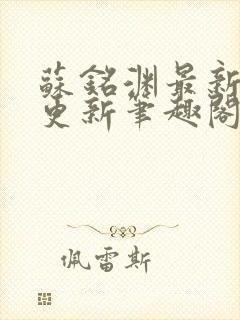 蘇銘渊最新
更新筆趣閣
佩雷斯